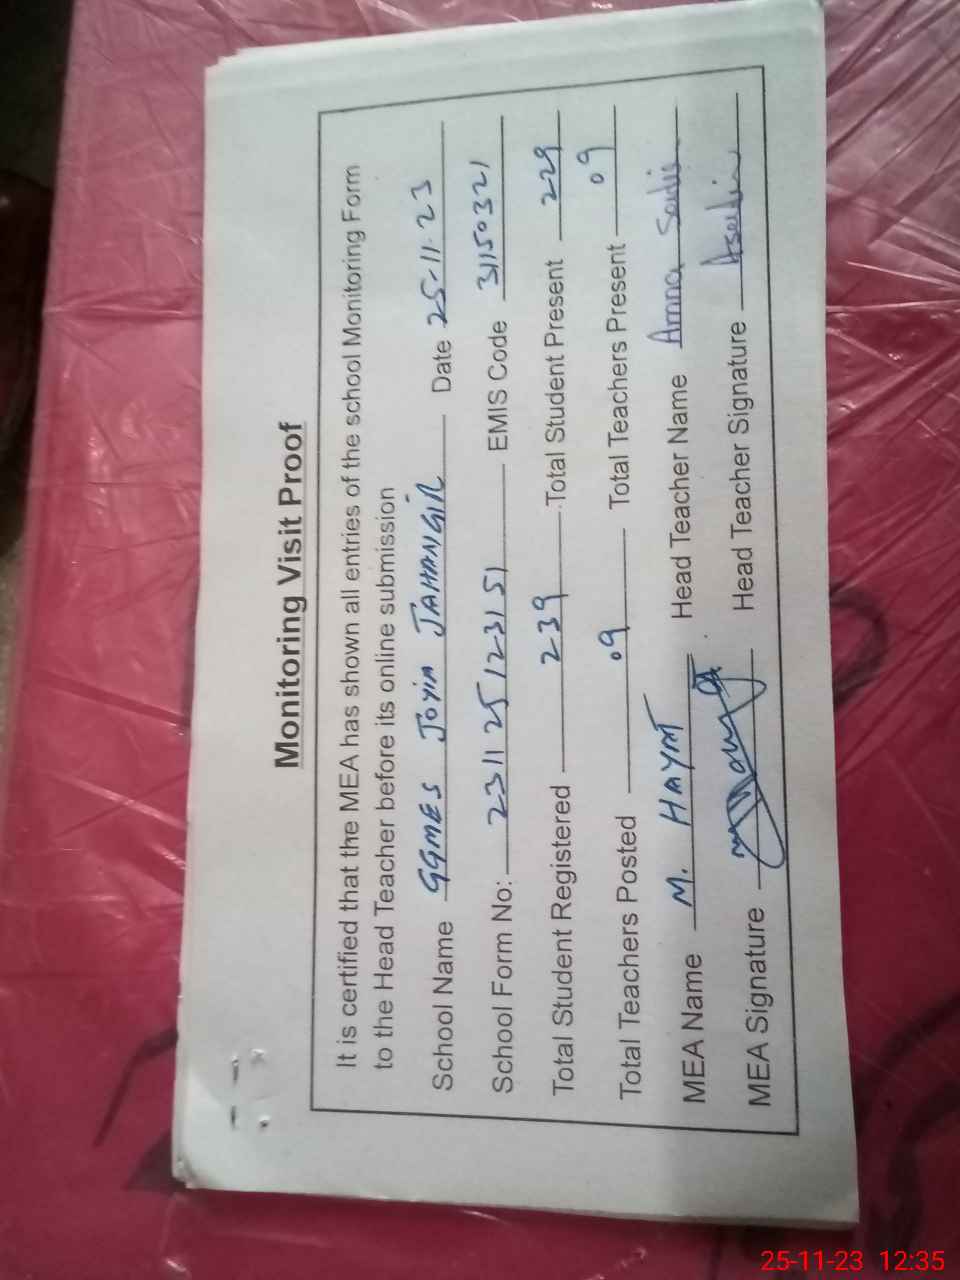 Monitoring Visit Proof
It is certified that the MEA has shown all entries of the school Monitoring Form
to the Head Teacher before its online submission
School Name GGMES JOYIA JAHANGIR Date 25-11-23
School Form No: 231125123151 EMIS Code 31150321
Total Student Registered 239 Total Student Present 229
Total Teachers Posted 09 Total Teachers Present 09
MEA Name M. HAYAT Head Teacher Name Amna
MEA Signature Head Teacher Signature
25-11-23 12:35